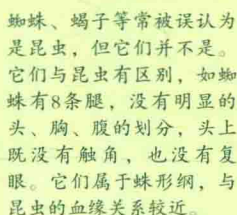 蜘蛛、蝎子等常被误认为
是昆虫，但它们并不是。
它们与昆虫有区别，如蜘
蛛有8条腿，没有明显的
头、胸、腹的划分，头上
既没有触角，也没有复
眼。它们属于蛛形纲，与
昆虫的血缘关系较近。